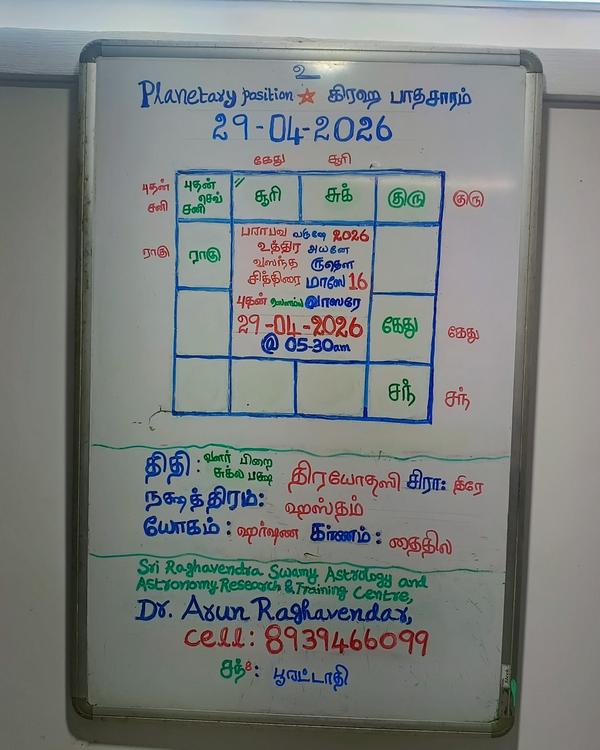 உ
Planetary position ☆ கிரஹ பாதசாரம்
29-04-2026
கேது சூரி
புதன் சனி
புதன் செவ் சனி
சூரி
சுக்
குரு
குரு
ராகு
ராகு
பராபவ வருஷே 2026
உத்திர அயனே
வஸந்த ருதௌ
சித்திரை மாஸே 16
புதன் வாஸரே
29-04-2026
@ 05-30am
கேது
கேது
சந்
சந்
திதி : வளர் பிறை
சுக்ல பக்ஷ
திரயோதஸி சிரா: கிரே
நக்ஷத்திரம்: ஹஸ்தம்
யோகம் : ஹர்ஷண கர்ணம் : தைதில
Sri Raghavendra Swamy Astrology and
Astronomy Research & Training Centre,
Dr. Arun Raghavendar,
cell: 8939466099
சந் 8: பூரட்டாதி